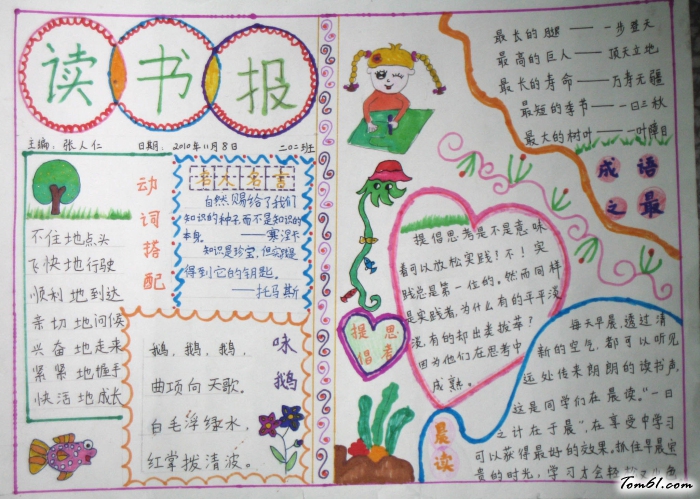 读书报
主编：张人仁 日期：2010年11月8日 二〇二班
动词搭配
不住地点头
飞快地行驶
顺利地到达
亲切地问候
兴奋地走来
紧紧地握手
快活地成长
名人名言
自然赐给了我们
知识的种子而不是知识的
本身。——塞涅卡
知识是珍宝，但实践是
得到它的钥匙。
——托马斯
咏鹅
鹅，鹅，鹅，
曲项向天歌。
白毛浮绿水，
红掌拨清波。
最长的腿——一步登天
最高的巨人——顶天立地
最长的寿命——万寿无疆
最短的季节——一日三秋
最大的树叶——一叶障目
成语之最
提倡思考
提倡思考是不是意味
着可以放松实践！不！实
践总是第一位的。然而同样
是实践者，为什么有的平平淡
没有的却出类拔萃？
因为他们在思考中
成熟。
晨读
每天早晨，透过清
新的空气，都可以听见
远处传来朗朗的读书声。
这是同学们在晨读。“一日
之计在于晨”，在享受中学习
可以获得最好的效果。抓住早晨宝
贵的时光，学习才会轻
Tom61.com